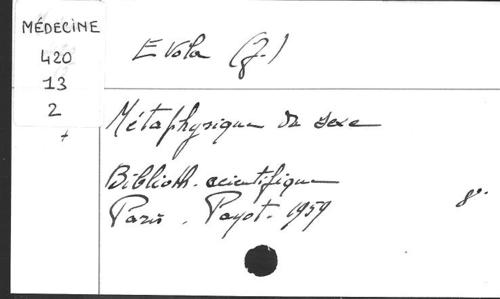 MÉDECINE
420
13
2
+
Evola (J.)
Métaphysique du sexe
Biblioth. scientifique
Paris. Payot. 1959
8°.